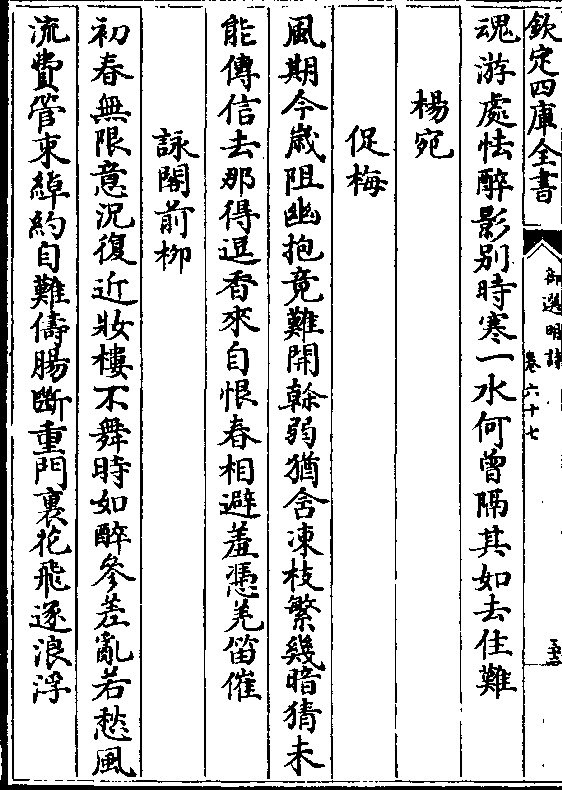 欽定四庫全書
御選明詩
卷六十七
魂游處怯醉影别時寒一水何曾隔其如去住難
楊宛
促梅
風期今嵗阻幽抱竟難開榦弱猶含凍枝繁幾暗猜未
能傳信去那得逗香來自恨春相避羞憑羌笛催
詠閣前柳
初春無限意況復近妝樓不舞時如醉參差亂若愁風
流費管束綽約自難儔腸斷重門裏花飛逐浪浮